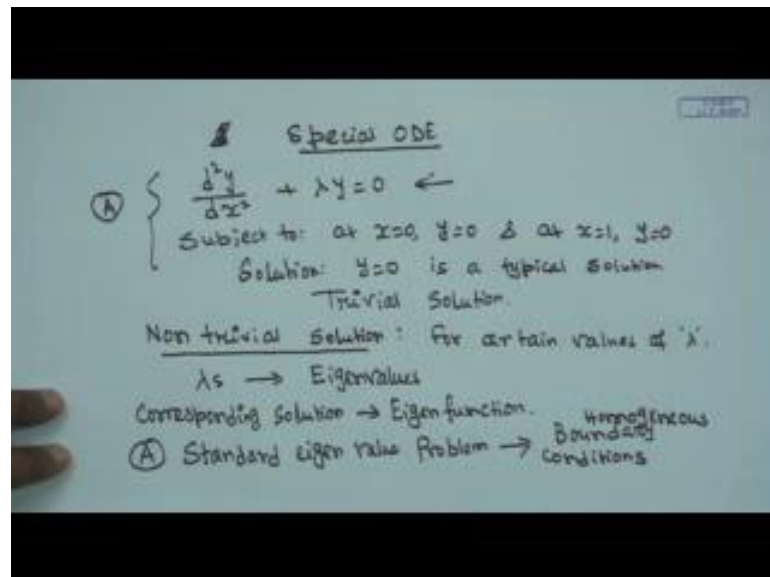 Special ODE
Ⓐ { d²y/dx² + λy = 0 ←
Subject to: at x=0, y=0 & at x=1, y=0
Solution: y=0 is a typical solution
Trivial Solution.
Non trivial Solution: For certain values of 'λ'.
λs → Eigenvalues
Corresponding Solution → Eigen function.
Ⓐ Standard eigen value Problem → Homogeneous Boundary Conditions